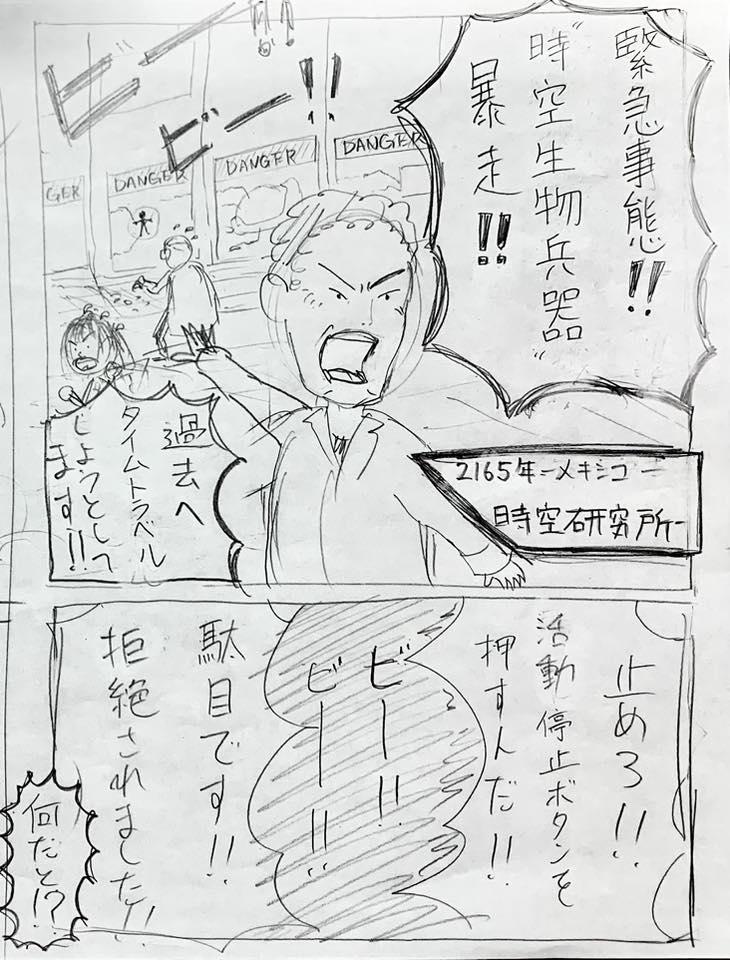 緊急事態!!
“時空生物兵器”
暴走!!
ビー!!
ビー!!
GER
DANGER
DANGER
DANGER
2165年-メキシコ-
時空研究所-
過去へ
タイムトラベル
しようとして
ます!!
止めろ!!
活動停止ボタンを
押すんだ!!
ビー!!
ビー!!
駄目です!!
拒絶されました!!
何だと!?